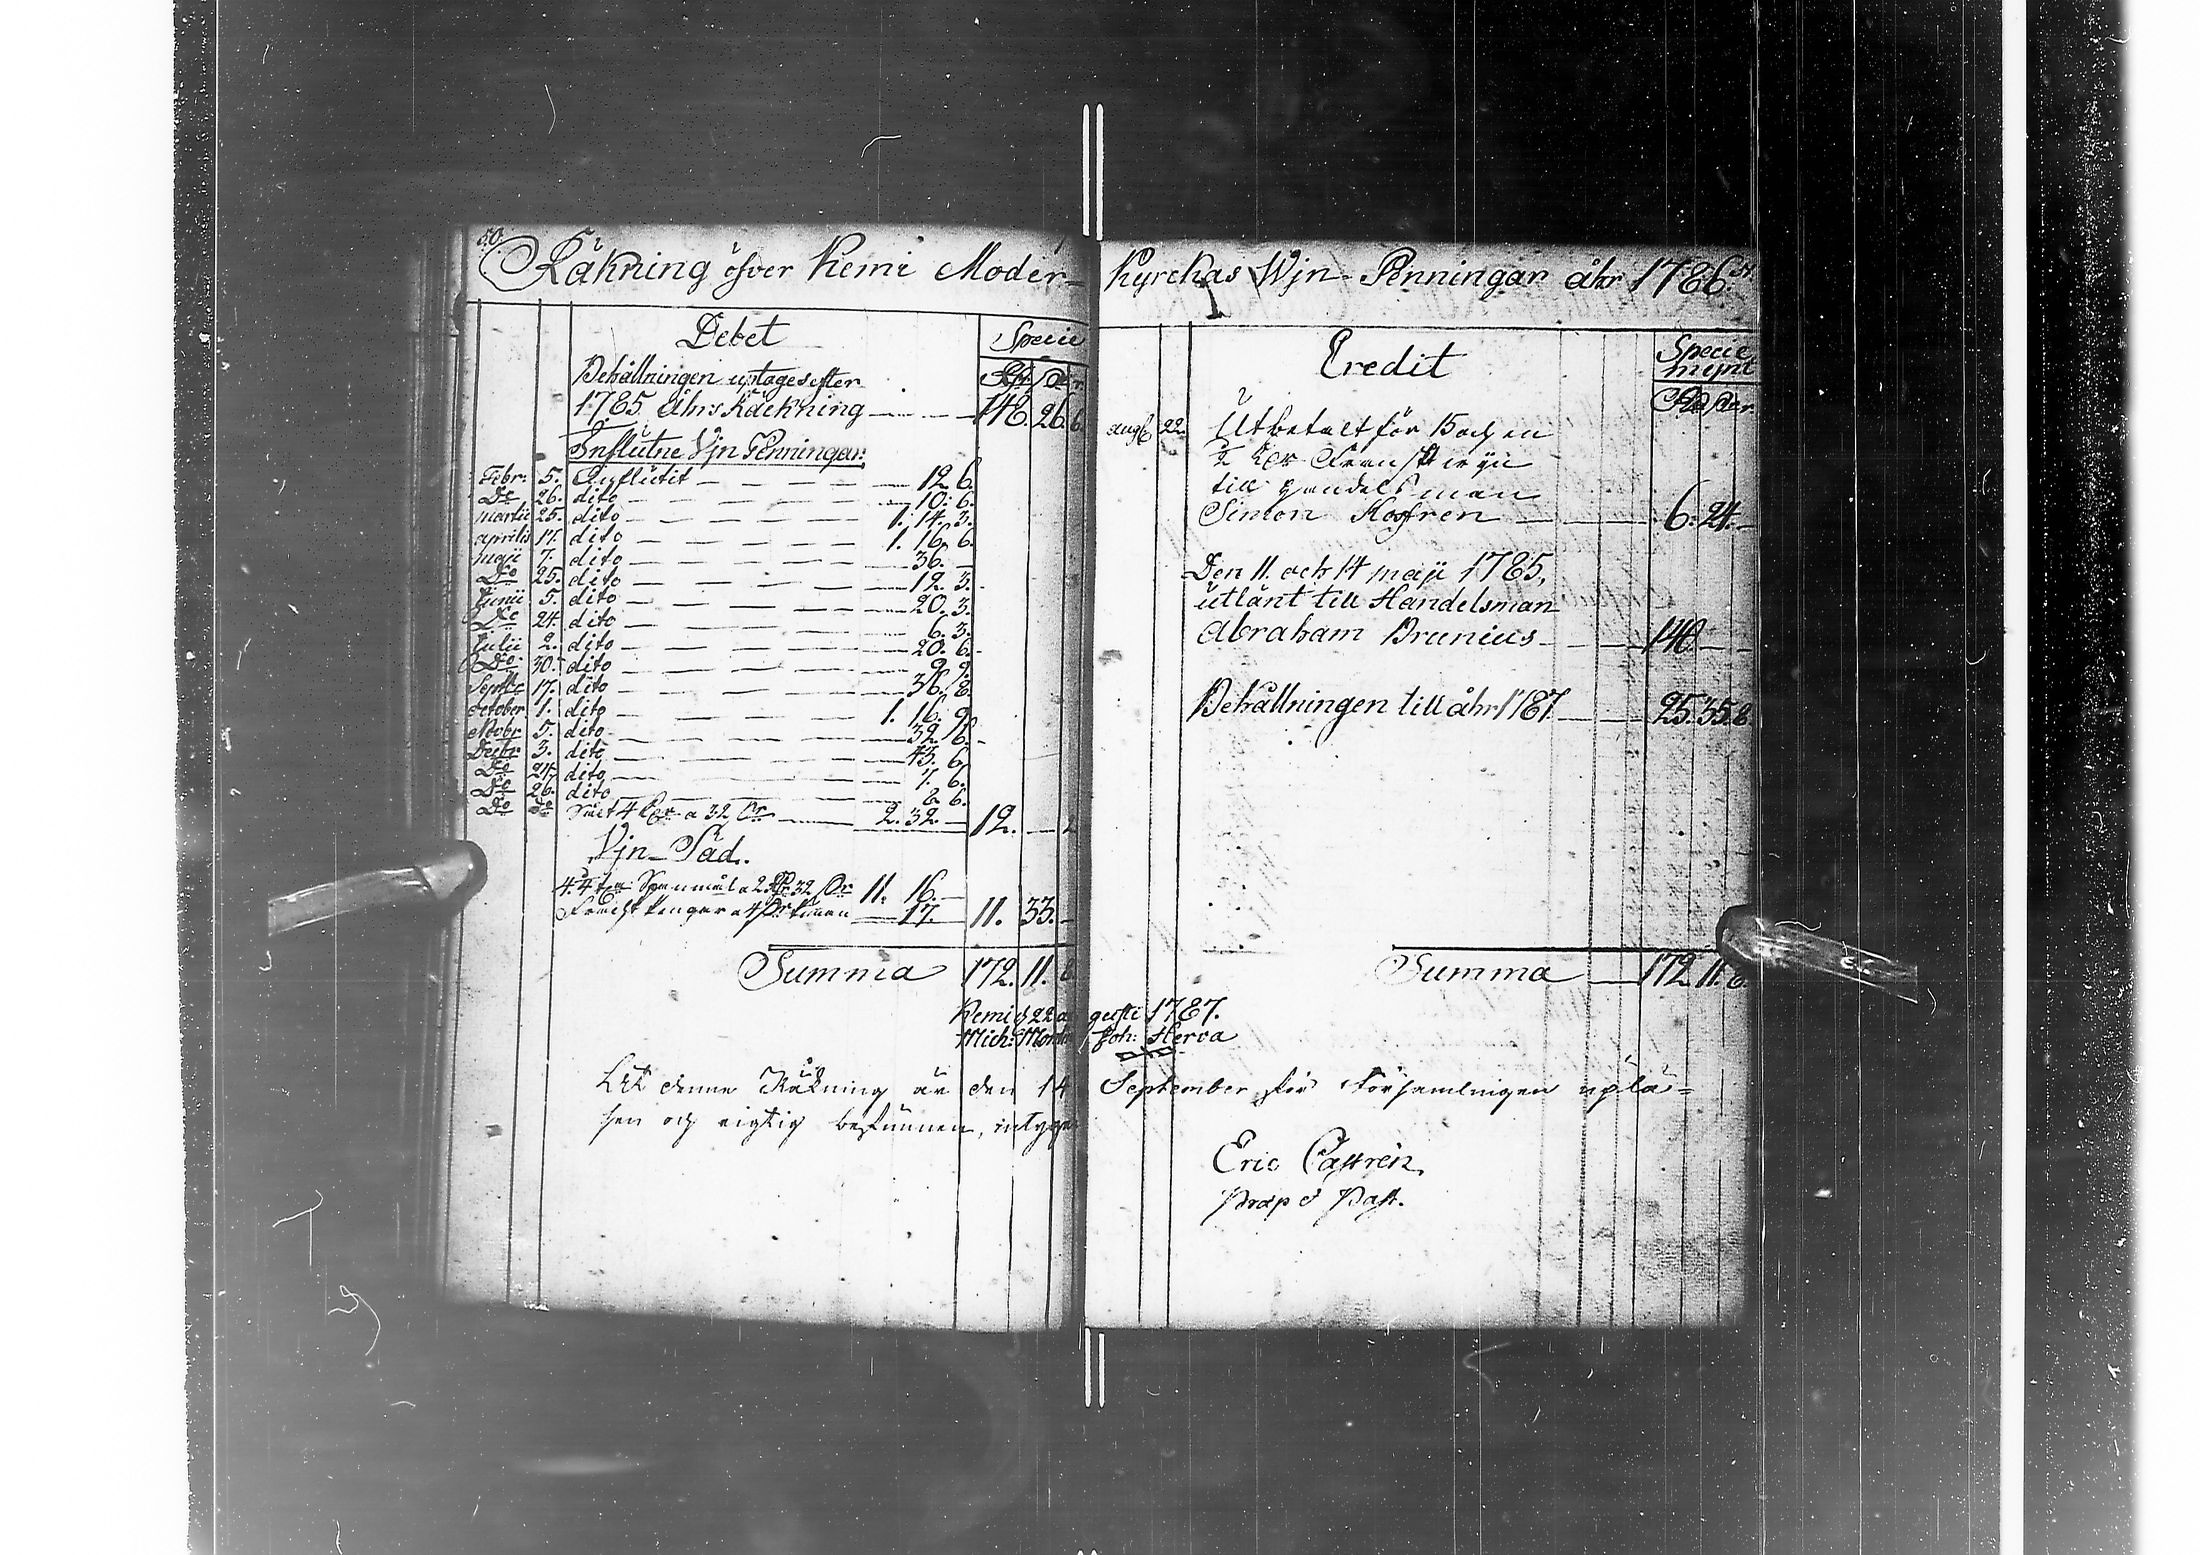 50.
Räkning öfver Kemi Moder-
Debet
Specie
Behållningen uptages efter
1785 Åhrs Räckning 148. 26. 6.
Influtne Vjn Penningar.
Febr: 5. Influtit 12. 6.
Do 26. dito 10. 6.
Martii 25. dito 1. 14. 3.
Aprilis 17. dito 1. 16. 6.
Maji 7. dito 36. —
Do 25. dito 12. 3.
Junii 5. dito 20. 3.
Do 24. dito 6. 3.
Julii 2. dito 20. 6.
Do 30. dito 9. 9.
Septbr 17. dito 36. 8.
October 1. dito 1. 16. 9.
Novbr 5. dito 32. 6.
Decbr 3. dito 43. 6.
Do 24. dito 7. 6.
Do 26. dito 8. 6.
Do Do 4 a 32 2. 32. — 12. —
Vjn-Säd.
4. Spanmål a 2 32 11. 16. —
a 4 17. — 11. 33. —
Summa 172. 11. 8
Kemi d 22 a
Mich:
Att denne Räkning är den 14
sen och rigtig befunnen, intygar
Kyrckas Wjn-Penningar åhr 1786.
Credit
Specie
mynt
Aug 22. Utbetalt för
till Handelsman
Simon 6. 24. —
Den 11. och 14 Maji 1785,
utlånt till Handelsman
Abraham Brunius 140. — —
Behållningen till åhr 1787 25. 35. 8.
Summa 172. 11. 8.
gusti 1787.
Joh: Herva
September för Församlingen uplä-
Eric Castrén
Præp & Past.